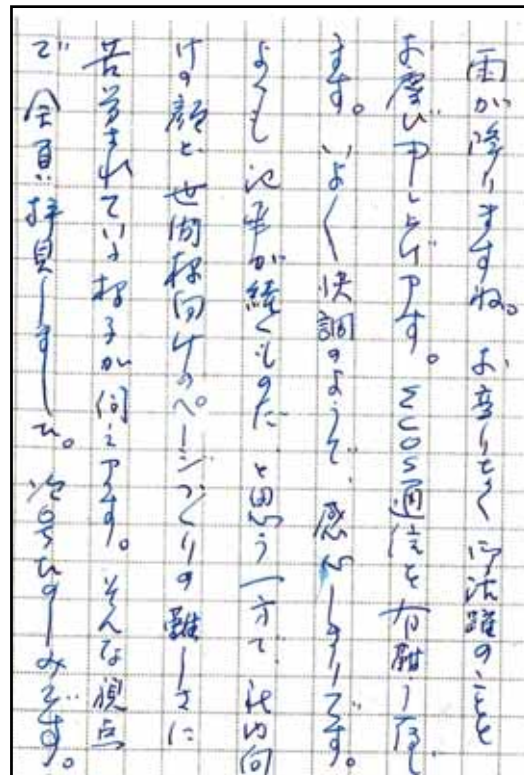 雨が降りますね。お変りなく御活躍のことと
お慶び申し上げます。ECOS通信を有難う存じ
ます。いよいよ快調のようで、感心しきりです。
よくも記事が続くものだと思う一方で、社内向
けの顔と世間様向けのページづくりの難しさに
苦労されている様子が伺えます。そんな視点
で全頁拝見しました。次号たのしみです。